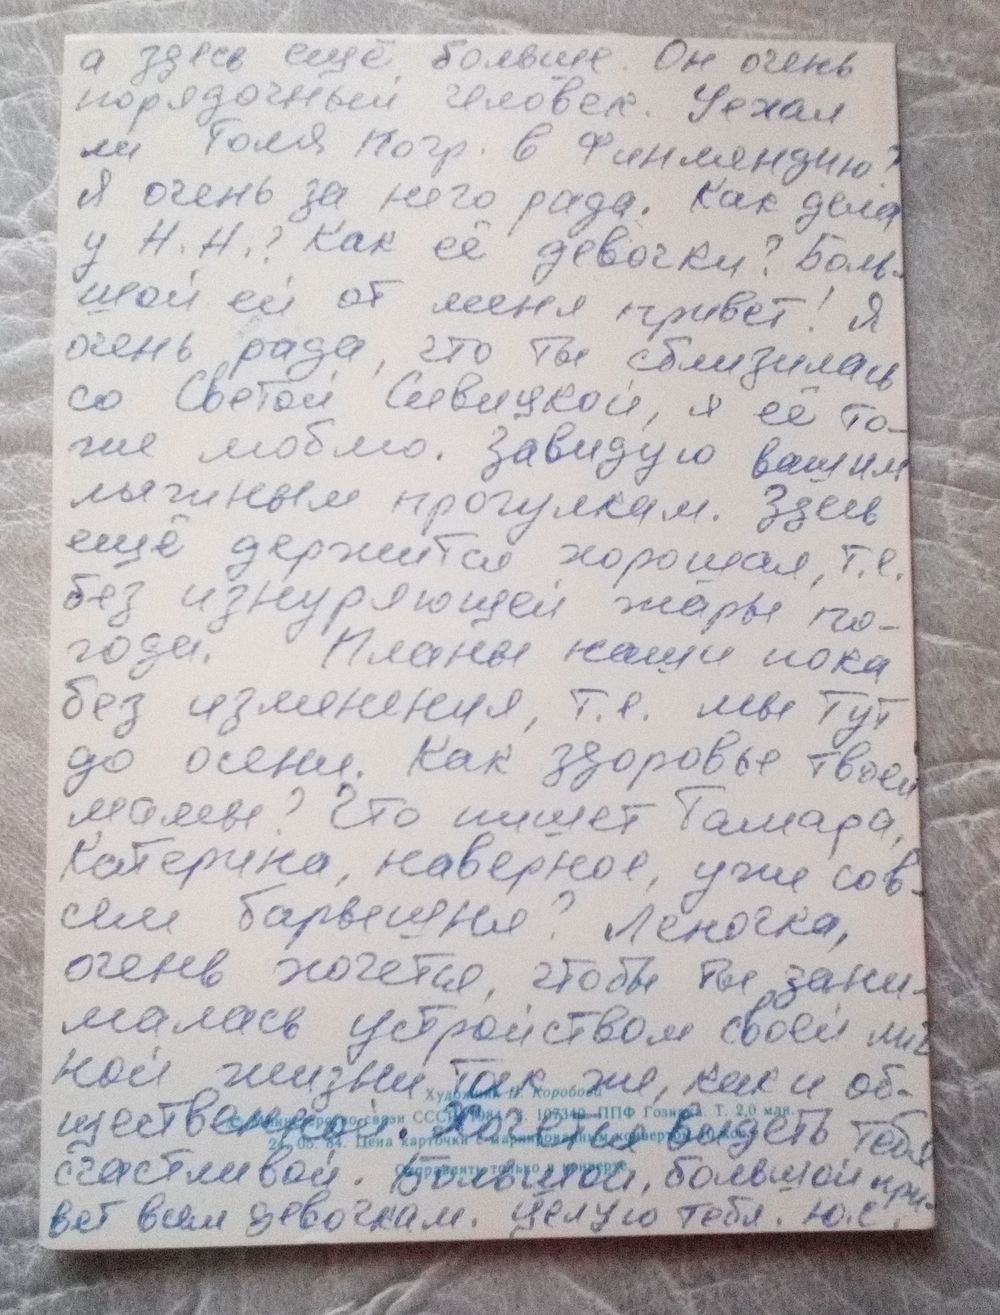 а здесь ещё больше. Он очень
порядочный человек. Уехал
ли Толя Погр. в Финляндию?
Я очень за него рада. Как дела
у Н.Н.? Как её девочки? Боль-
шой ей от меня привет! Я
очень рада, что ты сблизилась
со Светой Сивицкой, я её то-
же люблю. Завидую вашим
лыжным прогулкам. Здесь
ещё держится хорошая, т.е.
без изнуряющей жары по-
года. Планы наши пока
без изменения, т.е. мы тут
до осени. Как здоровье твоей
мамы? Что пишет Тамара,
Катерина, наверное, уже сов-
сем барышня? Леночка,
очень хочется, чтобы ты зани-
малась устройством своей лич
ной жизни так же, как и об-
Художник Н. Коробова
щественной. Хочется видеть тебя
© Министерство связи СССР, 1984. З. 107340. ППФ Гознака. Т. 2,0 млн.
05. 84. Цена карточки с маркированным конвертом
счастливой. Большой, большой при-
Отправлять только в конверте
вет всем девочкам. Целую тебя. Ю.С.